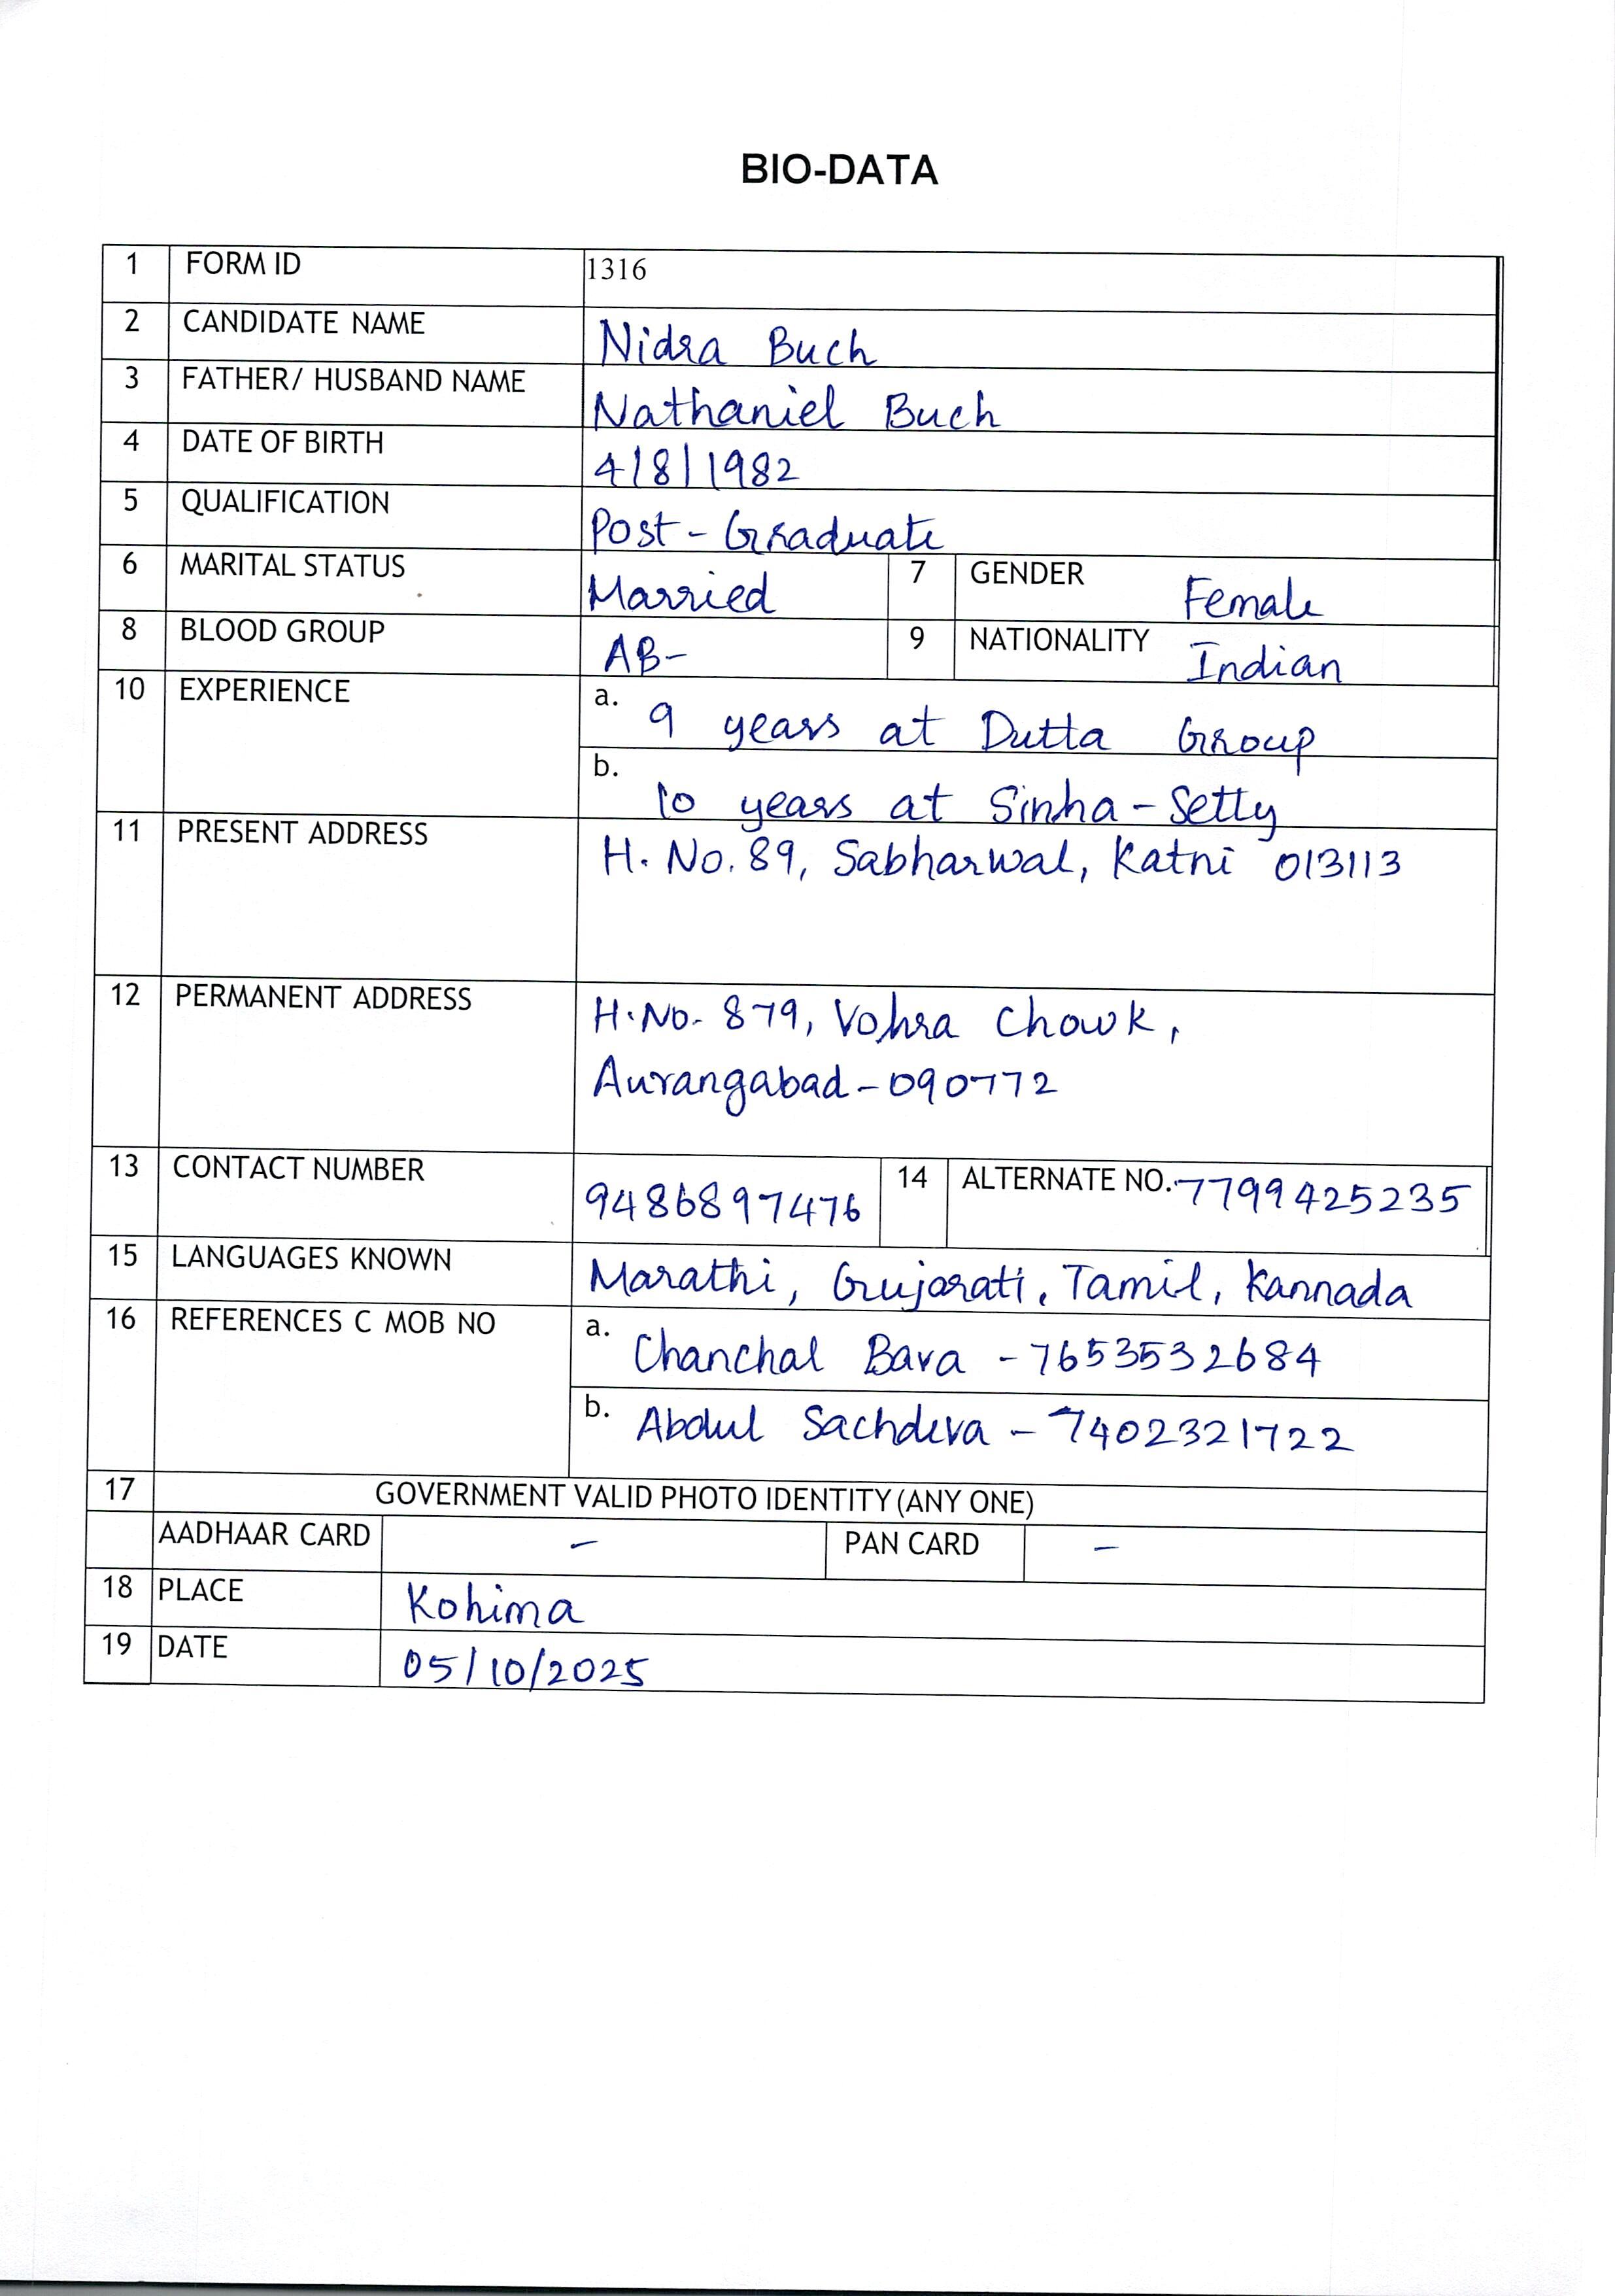 BIO-DATA
1 FORM ID 1316
2 CANDIDATE NAME Nidra Buch
3 FATHER/ HUSBAND NAME Nathaniel Buch
4 DATE OF BIRTH 4/8/1982
5 QUALIFICATION Post-Graduate
6 MARITAL STATUS Married 7 GENDER Female
8 BLOOD GROUP AB- 9 NATIONALITY Indian
10 EXPERIENCE a. 9 years at Dutta Group
b. 10 years at Sinha-Setty
11 PRESENT ADDRESS H. No. 89, Sabharwal, Katni 013113
12 PERMANENT ADDRESS H.No- 879, Vohra Chowk,
Aurangabad-090772
13 CONTACT NUMBER 9486897476 14 ALTERNATE NO. 7799425235
15 LANGUAGES KNOWN Marathi, Gujarati, Tamil, Kannada
16 REFERENCES C MOB NO a. Chanchal Bava - 7653532684
b. Abdul Sachdeva - 7402321722
17 GOVERNMENT VALID PHOTO IDENTITY (ANY ONE)
AADHAAR CARD - PAN CARD -
18 PLACE Kohima
19 DATE 05/10/2025